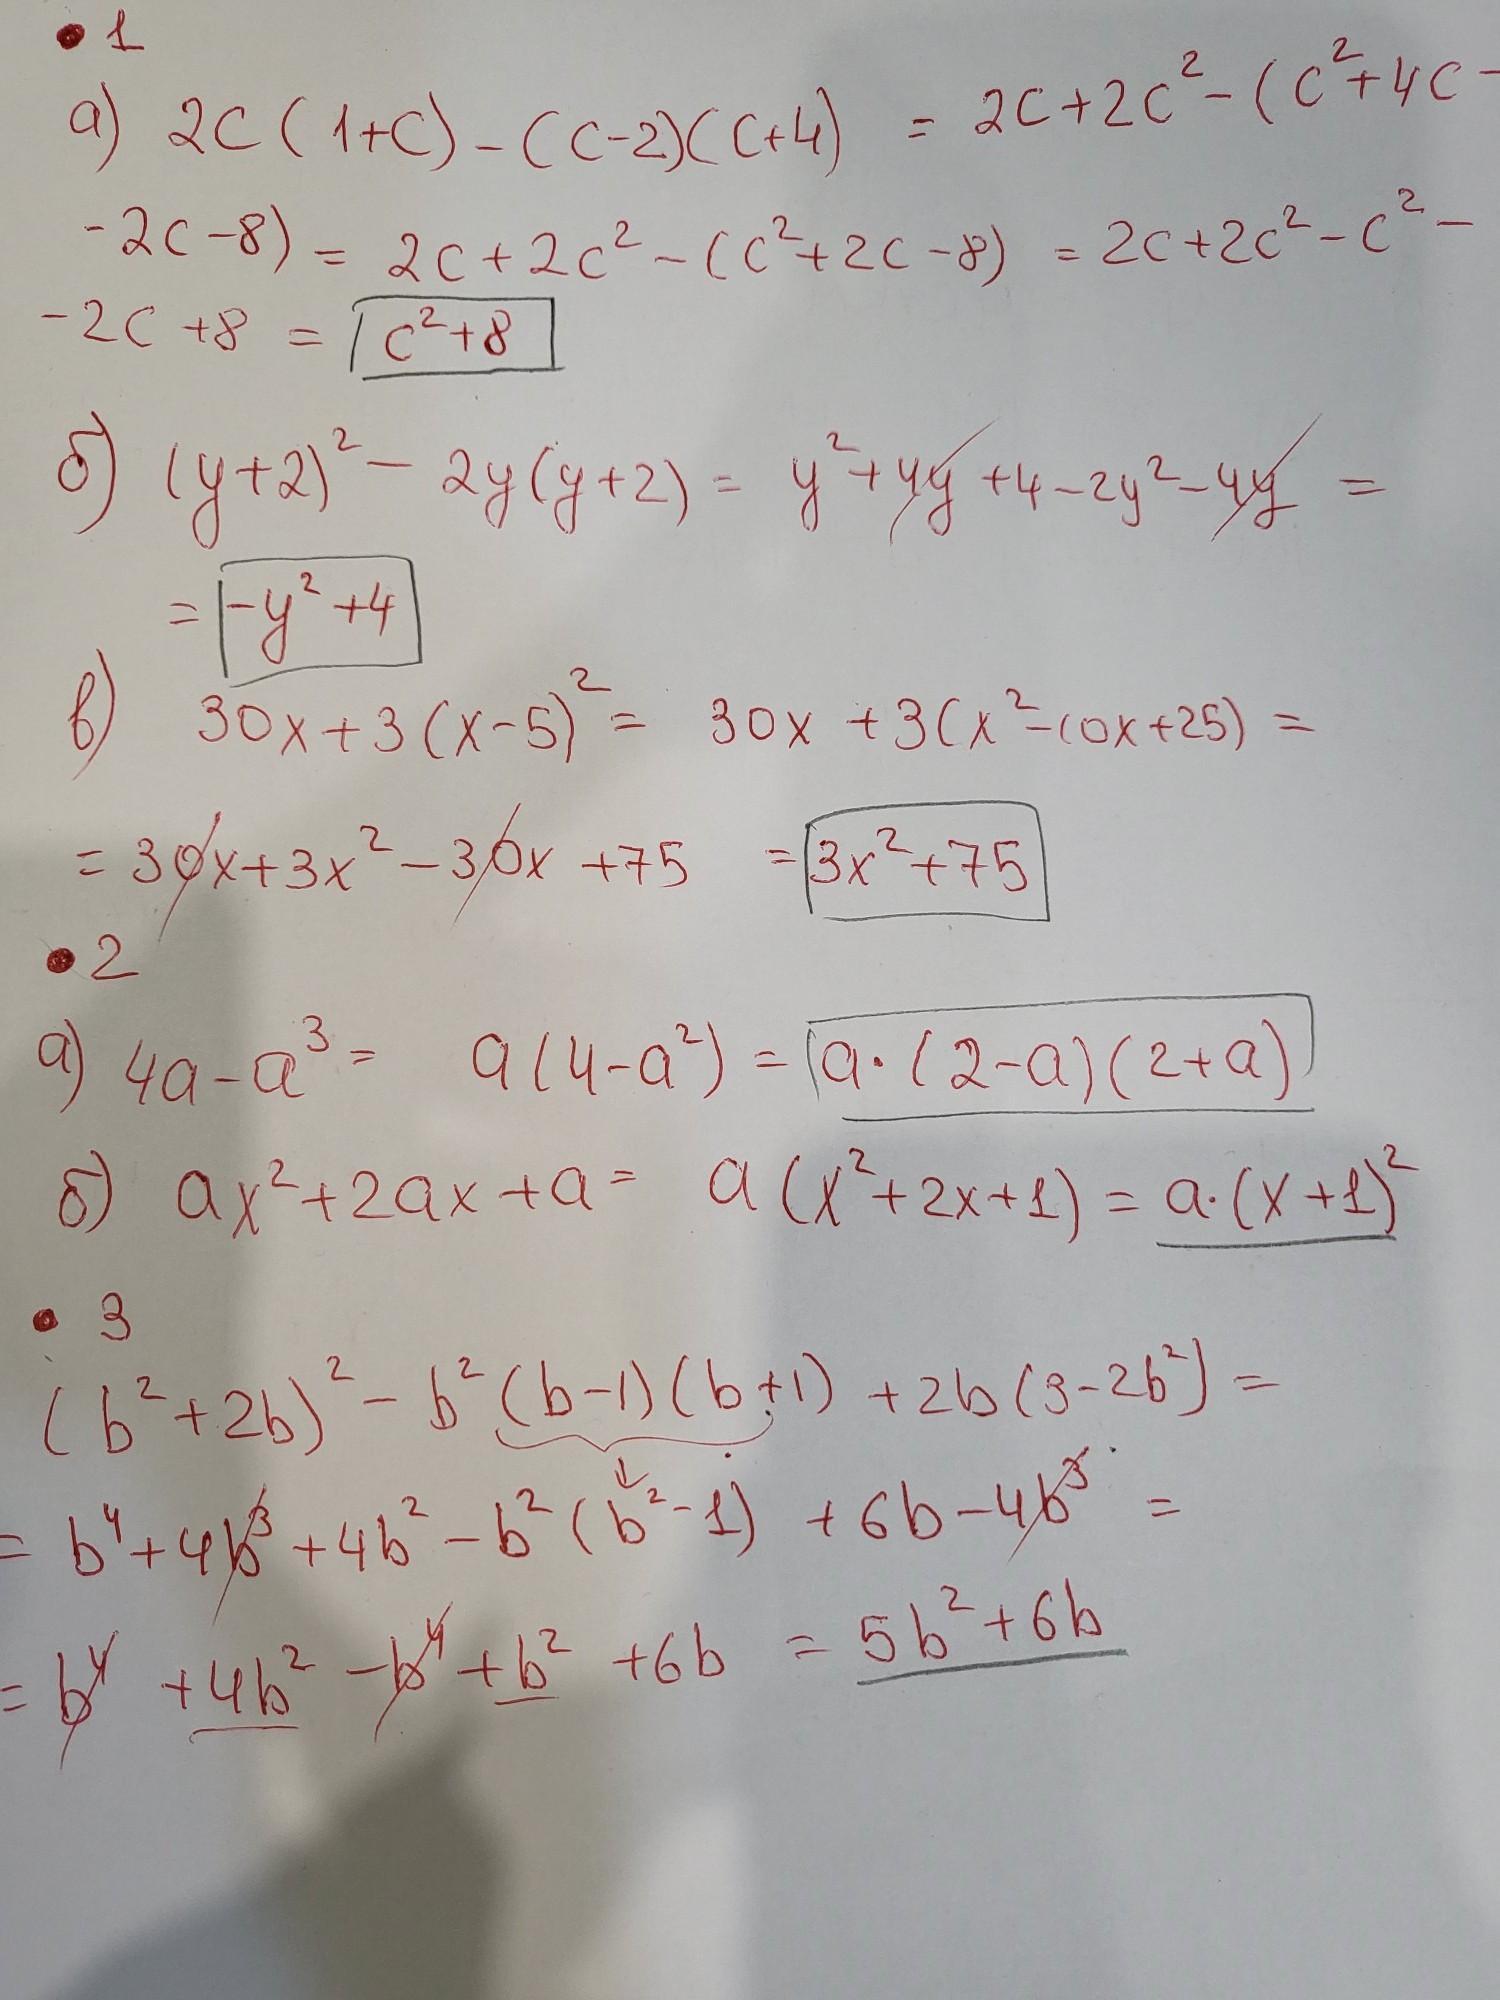 • 1
а) 2c(1+c)-(c-2)(c+4) = 2c+2c²-(c²+4c-
-2c-8) = 2c+2c²-(c²+2c-8) = 2c+2c²-c²-
-2c+8 = c²+8
б) (y+2)²-2y(y+2) = y²+4y+4-2y²-4y =
= -y²+4
в) 30x+3(x-5)² = 30x+3(x²-10x+25) =
= 30x+3x²-30x+75 = 3x²+75
• 2
а) 4a-a³ = a(4-a²) = a·(2-a)(2+a)
б) ax²+2ax+a = a(x²+2x+1) = a·(x+1)²
• 3
(b²+2b)²-b²(b-1)(b+1)+2b(3-2b²) =
= b⁴+4b³+4b²-b²(b²-1)+6b-4b³ =
= b⁴+4b²-b⁴+b²+6b = 5b²+6b